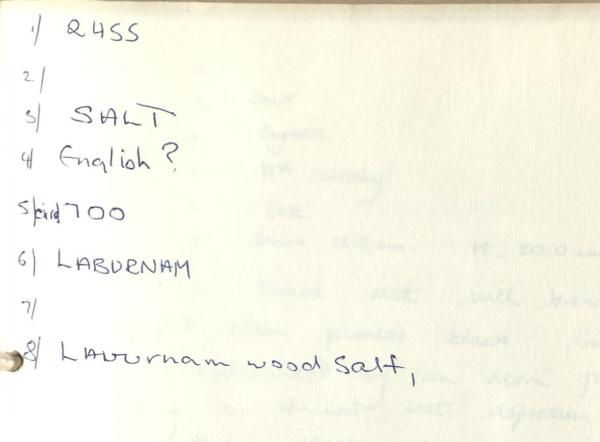 1/ 2455
2/
3/ SALT
4/ English?
5/ circ 1700
6/ LABURNAM
7/
8/ Laburnam wood Salt,